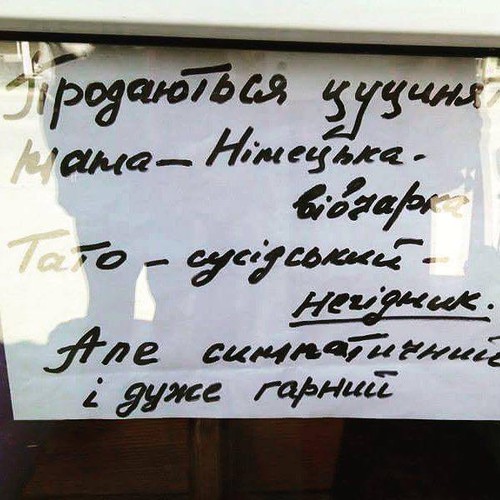 Продаються цуциня
мама – Німецька -
вівчарка
Тато – сусідський -
негідник.
Але симпатичний
і дуже гарний